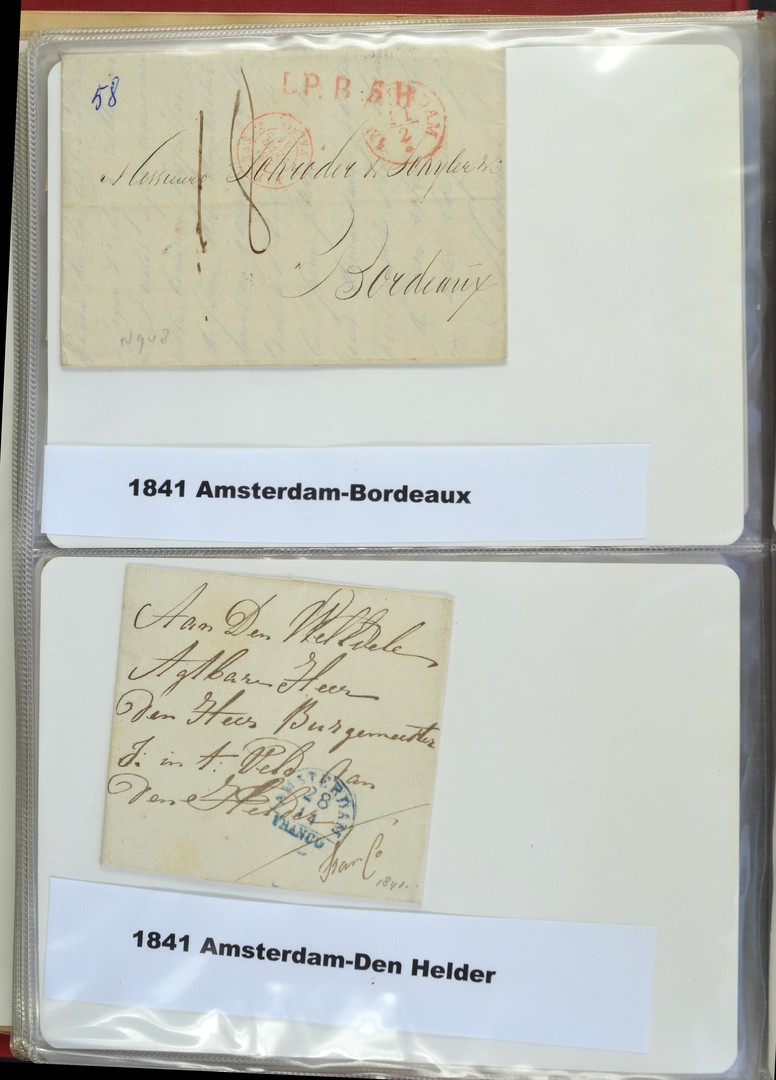 58
L.P.B.5.H
18
Messieurs Schröder & Schyler & Co
Bordeaux
N948
1841 Amsterdam-Bordeaux
Aan Den WelEdele
Agtbare Heer
Den Heer Burgemeester
J: in t: Veld van
Den Helder
AMSTERDAM
28
14
FRANCO
franco
1841.
1841 Amsterdam-Den Helder